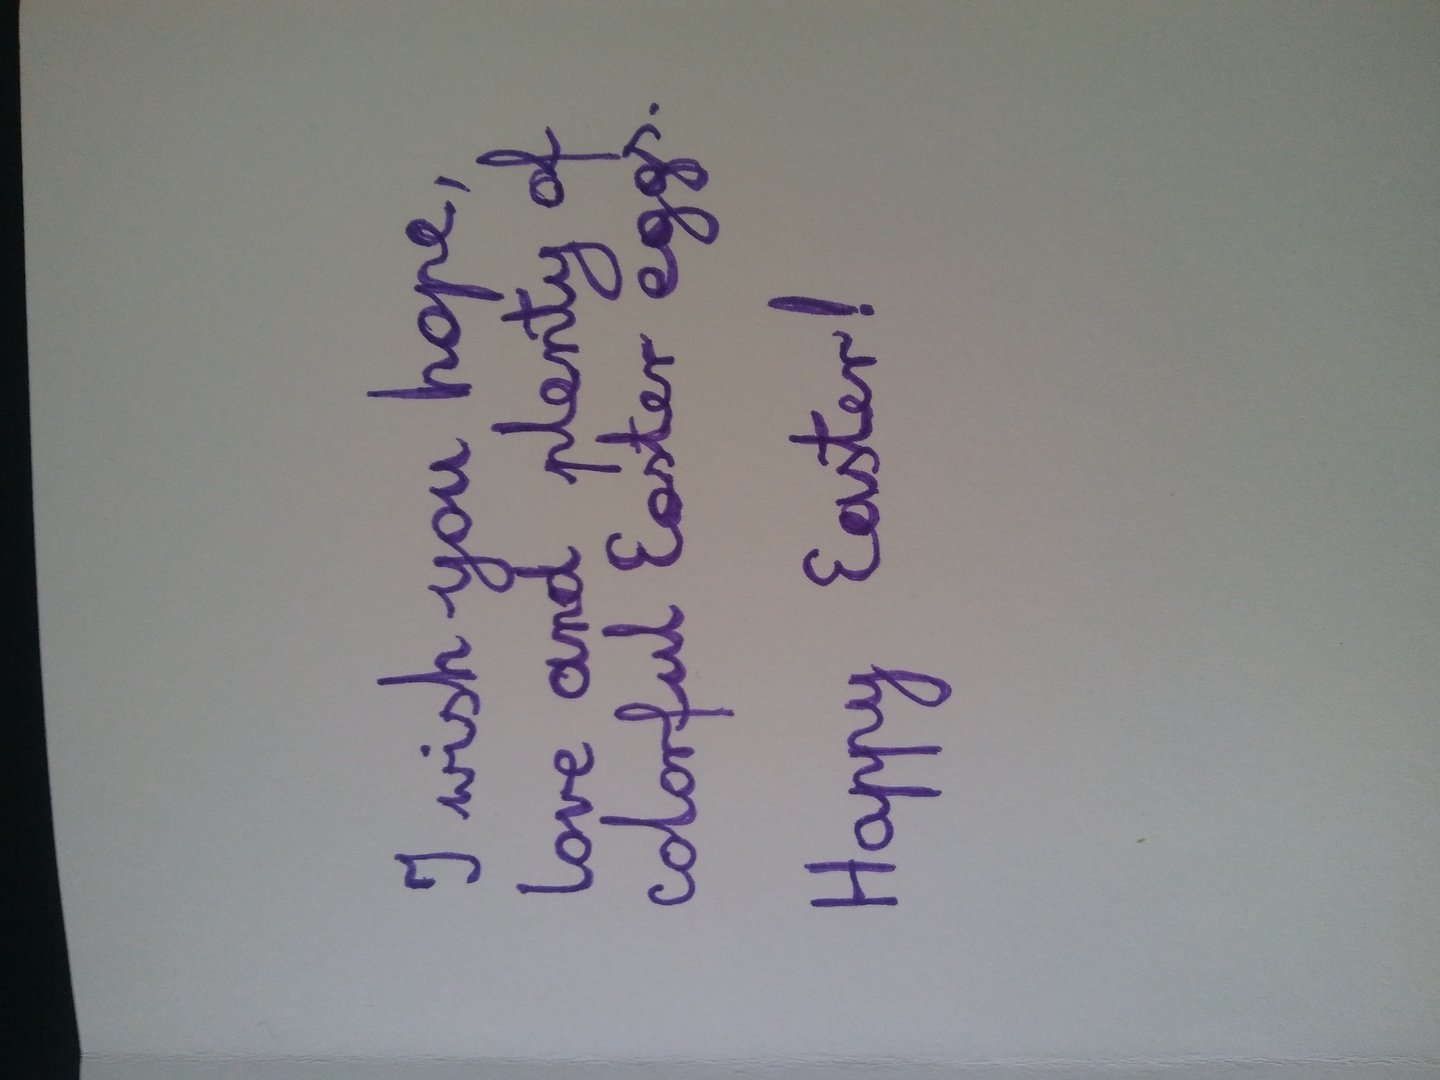 I wish you hope,
love and plenty of
colorful Easter eggs.
Happy Easter!